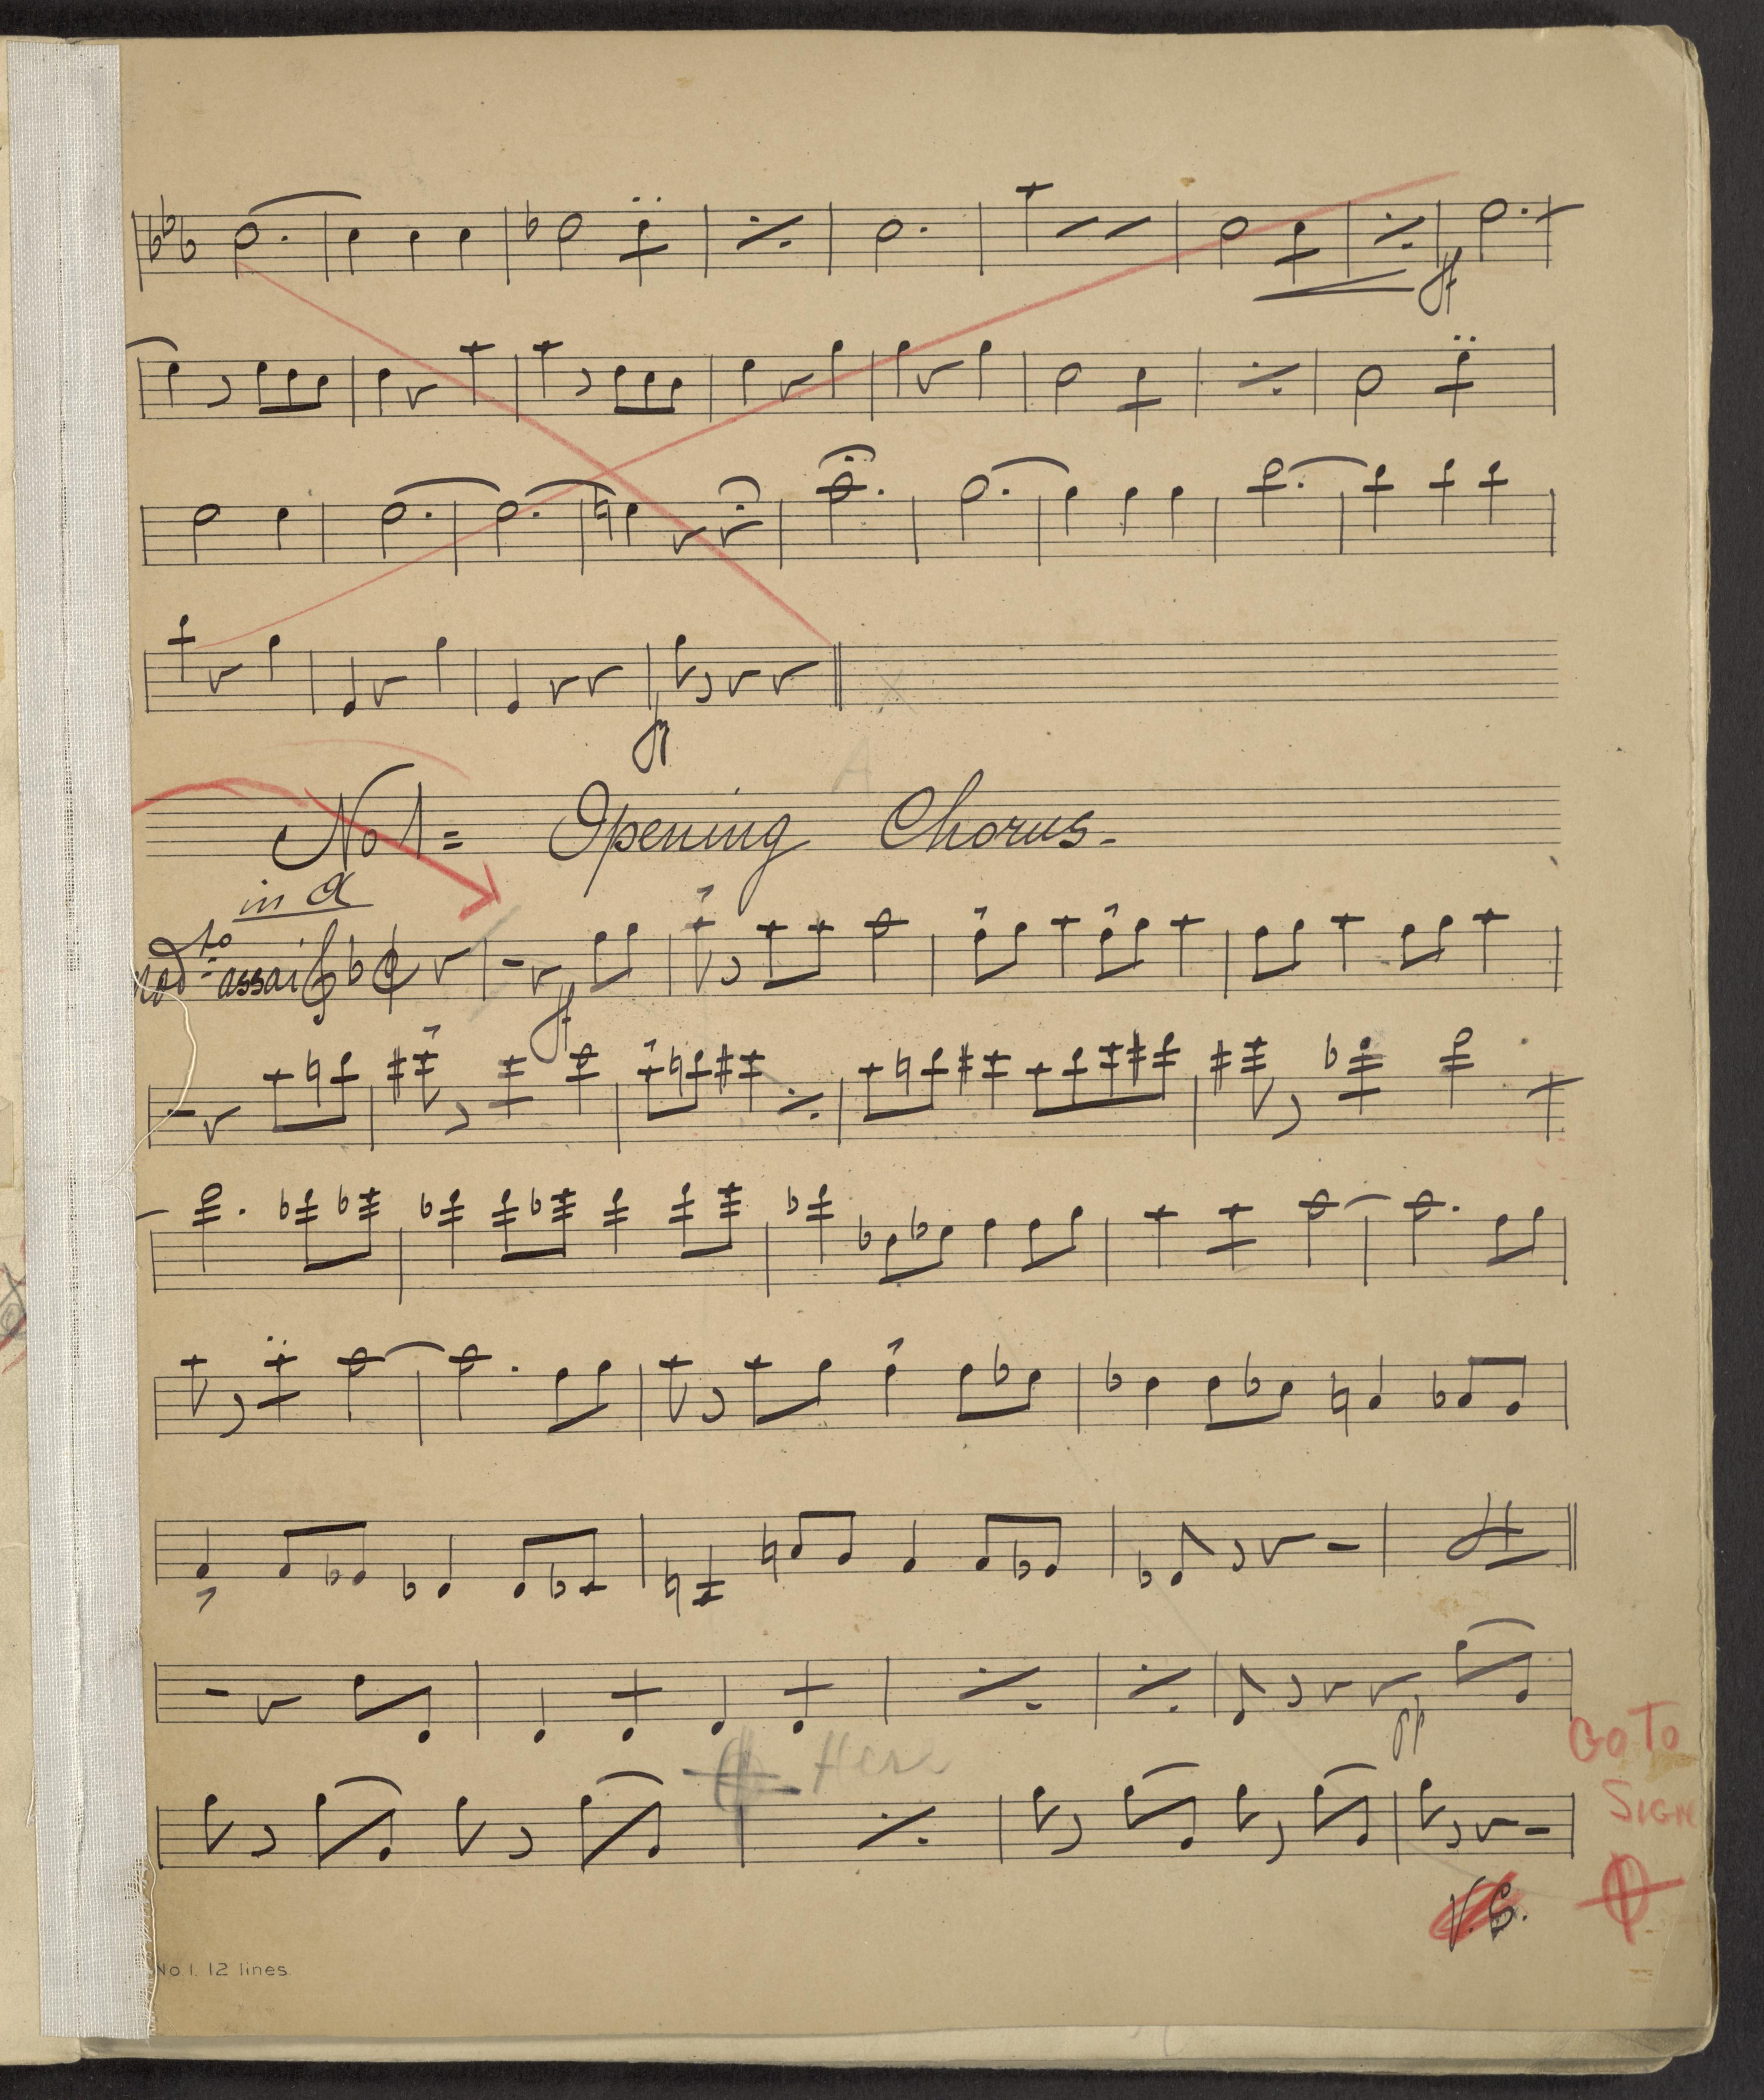 ff
ff
No 1 = Opening Chorus-
in a
mod to assai
ff
Here
pp
GO TO
SIGN
V.S.
No. 1. 12 lines.